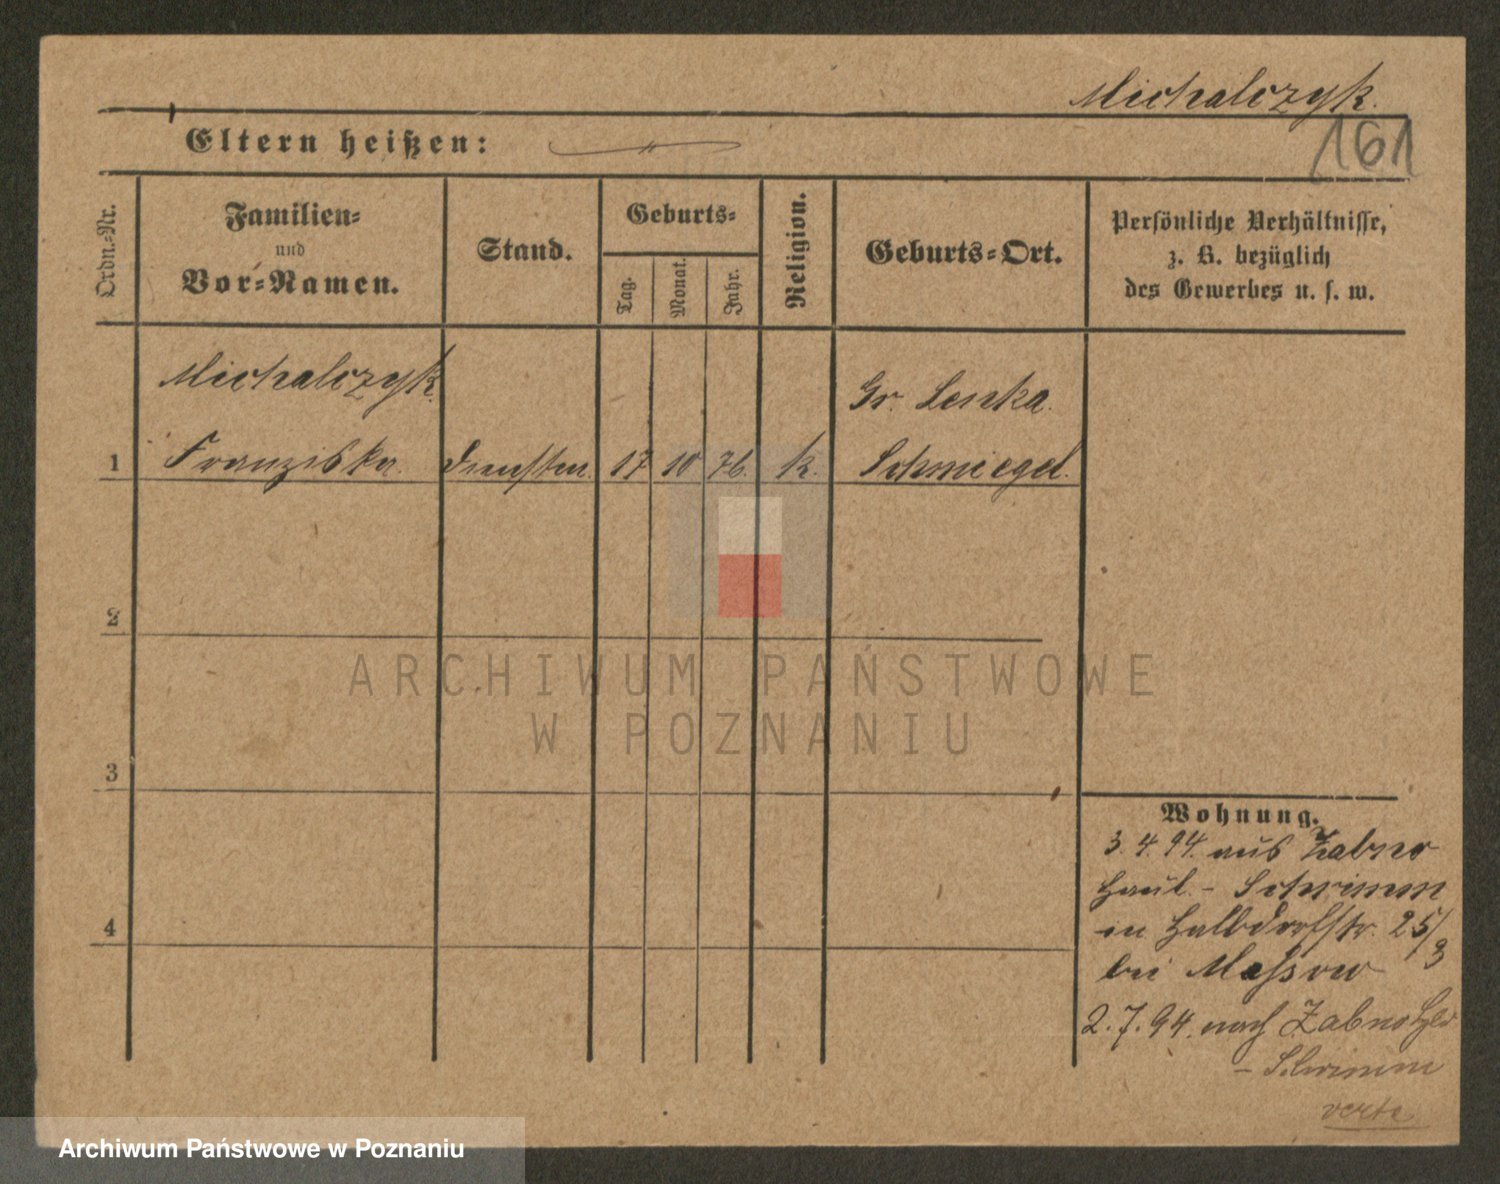 Michalczyk.
161
Eltern heißen:
Ordn.-Nr.
Familien-
und
Vor-Namen.
Stand.
Geburts-
Tag.
Monat.
Jahr.
Religion.
Geburts-Ort.
Persönliche Verhältnisse,
z. B. bezüglich
des Gewerbes u. s. w.
Michalczyk
Gr. Lenka.
1 Franziska. 17 10 76. k. Schmiegel.
2
3
4
ARCHIWUM PAŃSTWOWE
W POZNANIU
Wohnung.
3. 4. 94. aus Zabno
Haul. - Schrimm
in Halbdorfstr. 25/3
bei Massow
2. 7. 94. nach Zabno
- Schrimm
verte
Archiwum Państwowe w Poznaniu